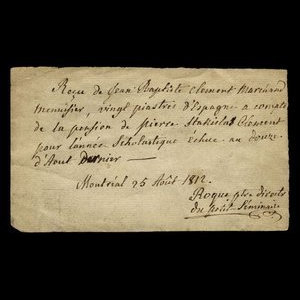 Reçu de Jean Baptiste Clement Marchand
Menuisier, vingt piastres d'Espagne a compte
de la pension de pierre Stanislas Clément
pour l'année Scholastique échue au douze
d'Aout Dernier —
Montréal 25 Août 1812.
Roque ptre direct.
du petit Séminaire